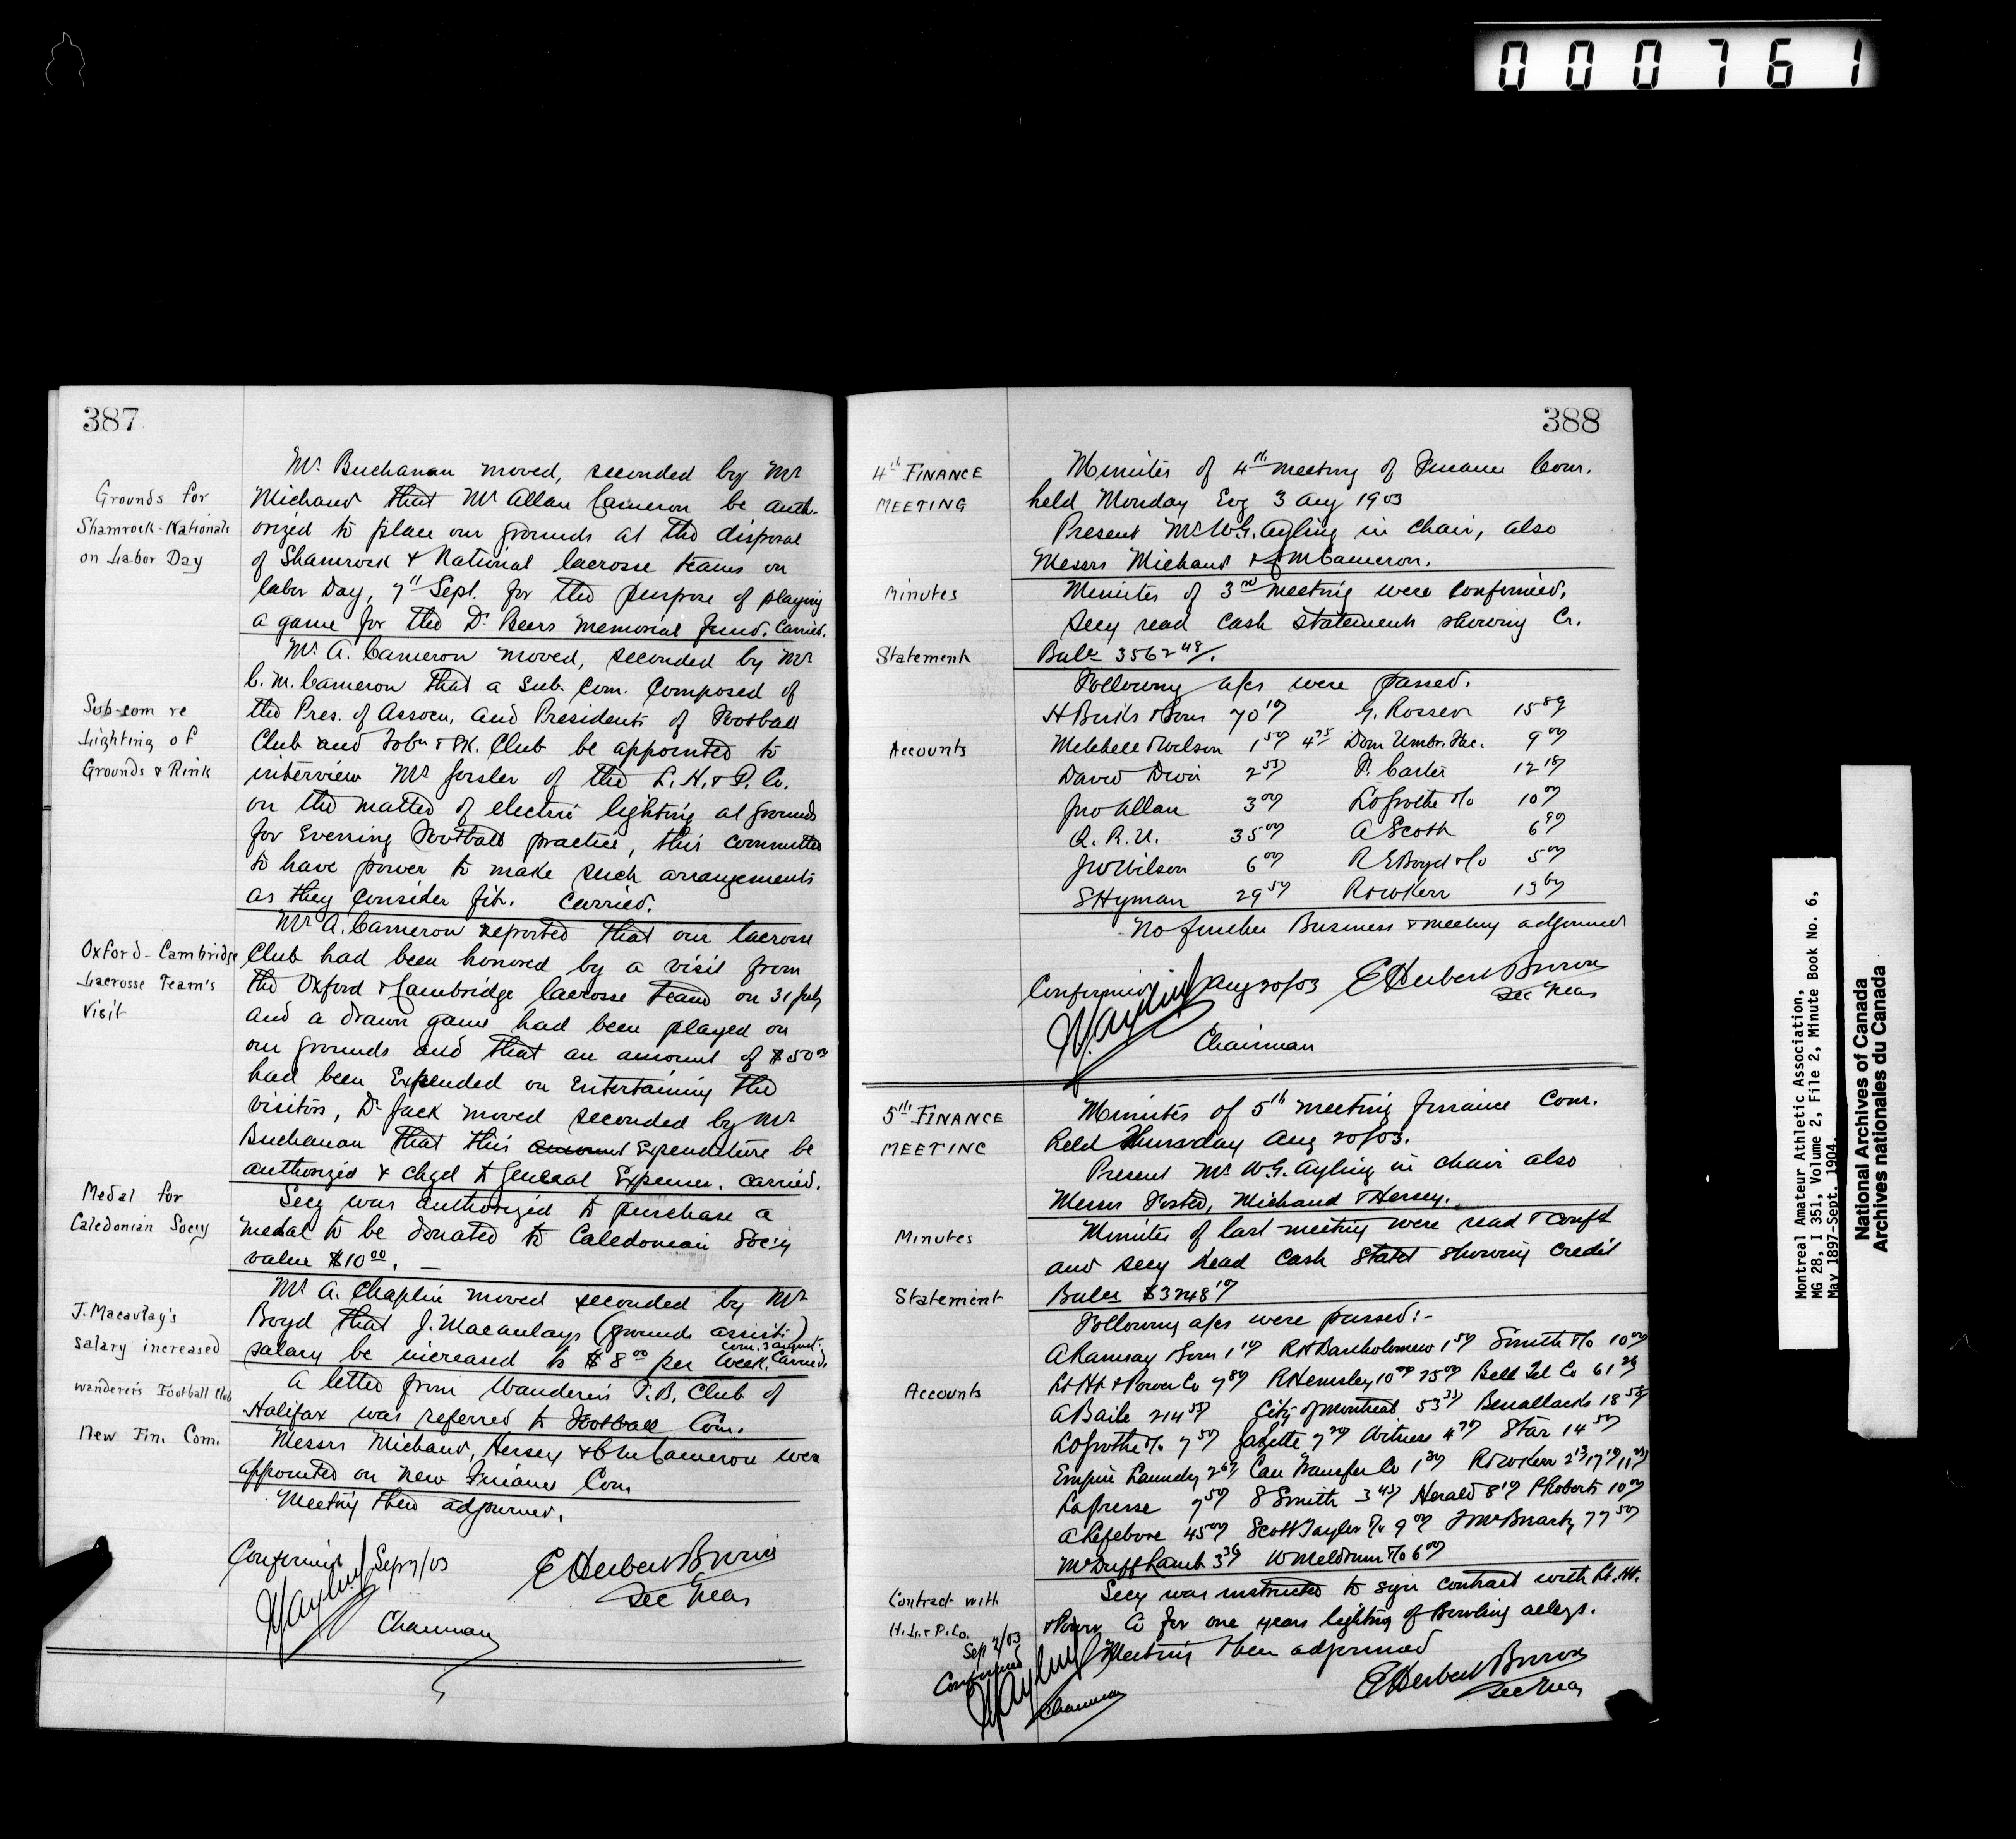 000761
387
Mr. Buchanan moved, seconded by Mr
Grounds for
Shamrock-Nationals
on Labor Day
Michaud that Mr Allan Cameron be auth-
orized to place our grounds at the disposal
of Shamrock & National lacrosse teams on
labor Day, 7th Sept. for the purpose of playing
a game for the Dr. Beers Memorial fund. Carried.
Mr. A. Cameron moved, seconded by Mr
Sub-com re
Lighting of
Grounds & Rink
C. M. Cameron that a Sub. Com. Composed of
the Pres. of Assocn. and Presidents of Football
Club and Tobn & SK. Club be appointed to
interview Mr of the L. H. & P. Co.
on the matter of electric lighting at grounds
for Evening Football practice, this committee
to have power to make such arrangements
as they consider fit. Carried.
Mr A. Cameron reported that our lacrosse
Oxford-Cambridge
Lacrosse Team's
Visit
Club had been honored by a visit from
the Oxford & Cambridge lacrosse team on 31 July
and a drawn game had been played on
our grounds and that an amount of $50 00
had been Expended on Entertaining the
visitors, Dr Jack moved seconded by Mr
Buchanan that this amount Expenditure be
authorized & chgd to General Expenses. Carried.
Medal for
Caledonian Socy
Secy was authorized to purchase a
medal to be donated to Caledonian Socy
value $10 00. —
J. Macaulay's
salary increased
Mr A. Chaplin moved seconded by Mr
Boyd that J. Macaulays (grounds assist.)
salary be increased to $8 00 per week. Carried.
com. 3 august.
Wanderers Football Club
A letter from Wanderers F. B. Club of
Halifax was referred to Football Com.
New Fin. Com.
Messrs Michaud, Hersey & C M Cameron were
appointed on new Finance Com
Meeting then adjourned.
Confirmed Sep 7/03
E Herbert Brown
Sec Treas
W G Ayling
Chairman
388
4th FINANCE
MEETING
Minutes of 4th meeting of Finance Com.
held Monday Evg 3 Aug 1903
Present Mr W. G. Ayling in chair, also
Messrs Michaud & C M Cameron.
Minutes
Minutes of 3rd meeting were confirmed.
Secy read cash statement showing Cr.
Statement
Balce 3562 48/.
Following a/cs were passed.
Accounts
H Birks & Sons 70 10 G. Rosser 15 89
Mitchell & Wilson 1 50 4 75 Dom Umbr. Fac. 9 00
David 2 55 P. Carter 12 10
Jno Allan 3 00 Co 10 00
Q. R. U. 35 00 A Scott 6 90
J W Wilson 6 00 R E Boyd & Co 5 00
S Hyman 29 50 R & W Kerr 13 60
No further Business & meeting adjourned
Confirmed Aug 20/03 E Herbert Brown
Sec Treas
W G Ayling
Chairman
5th FINANCE
MEETING
Minutes of 5th meeting finance Com.
held Thursday Aug 20/03.
Present Mr W. G. Ayling in chair also
Messrs Foster, Michaud & Hersey.
Minutes
Minutes of last meeting were read & confd
and Secy read cash statet showing credit
Statement
Balce $3248 10
Following a/cs were passed:-
Accounts
A Ramsay & Son 1 10 R H Bartholomew 1 50 Smith Co 10 00
L H & Power Co 7 80 R Hemsley 10 00 25 00 Bell Tel Co 61 26
A Baile 214 55 City of Montreal 53 33 Benallack 18 55
Co 7 50 Gazette 7 20 Witness 4 70 Star 14 50
Empire Laundry 2 62 Can Transfer Co 1 30 R & W Kerr 2 13 17 10
La presse 7 50 S Smith 3 45 Herald 8 10 P Roberts 10 00
A Lefebvre 45 00 Scott Taylor Co 9 00 77 50
McDuff Lamb 3 36 W Meldrum Co 6 00
Contract with
H. L. & P. Co.
Secy was instructed to sign contract with Lt. Ht.
& Power Co for one years lighting of Bowling alleys.
Meeting then adjourned
Sep 7/03
Confirmed
W G Ayling
Chairman
E Herbert Brown
Sec Treas
Montreal Amateur Athletic Association,
MG 28, I 351, Volume 2, File 2, Minute Book No. 6,
May 1897-Sept. 1904.
National Archives of Canada
Archives nationales du Canada